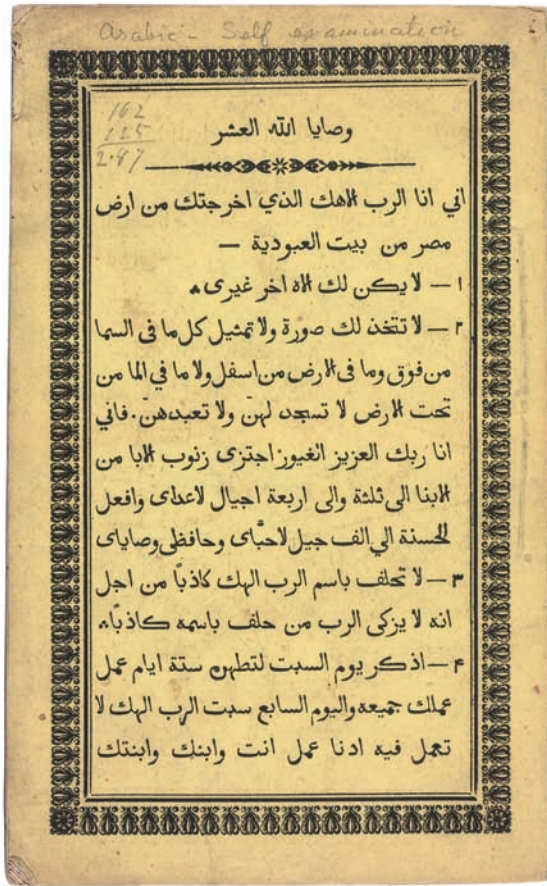 Arabic - Self examination
162
125
2.87
وصايا الله العشر
اني انا الرب الاهك الذي اخرجتك من ارض
مصر من بيت العبودية —
١ — لا يكن لك الاه اخر غيرى
٢ — لا تتخذ لك صورة ولا تمثيل كل ما فى السما
من فوق وما فى الارض من اسفل ولا ما في الما من
تحت الارض لا تسجد لهنّ ولا تعبدهنّ. فاني
انا ربك العزيز الغيور اجتزى زنوب الابا من
الابنا الى ثلثة والى اربعة اجيال لاعداى وافعل
الحسنة الي الف جيل لاحبَّاى وحافظى وصاياى
٣ — لا تحلف باسم الرب الهك كاذبًا من اجل
انه لا يزكى الرب من حلف باسمه كاذبًا
۴ — اذكر يوم السبت لتطهره ستة ايام عمل
عملك جميعه واليوم السابع سبت الرب الهك لا
تعمل فيه ادنا عمل انت وابنك وابنتك